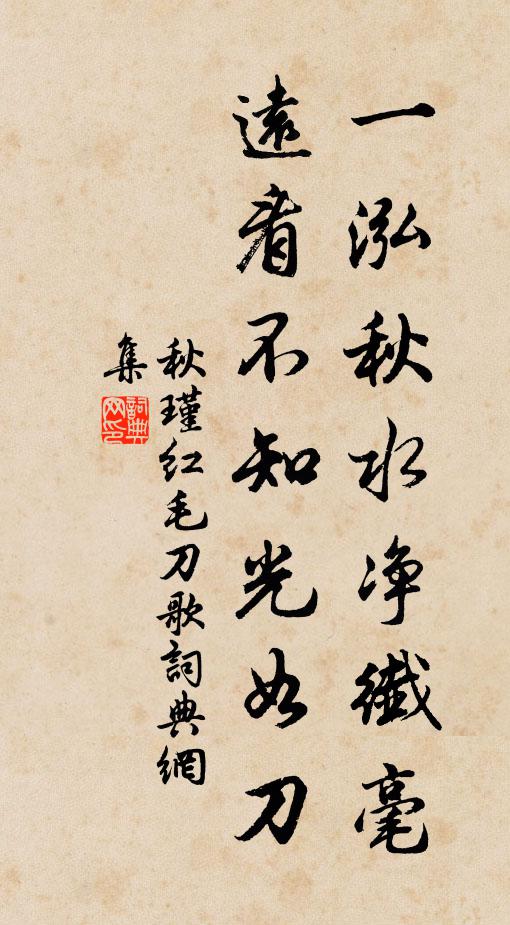 一泓秋水净纖毫
遠看不知光如刀
秋瑾红毛刀歌詞典網
集
詞典
网印